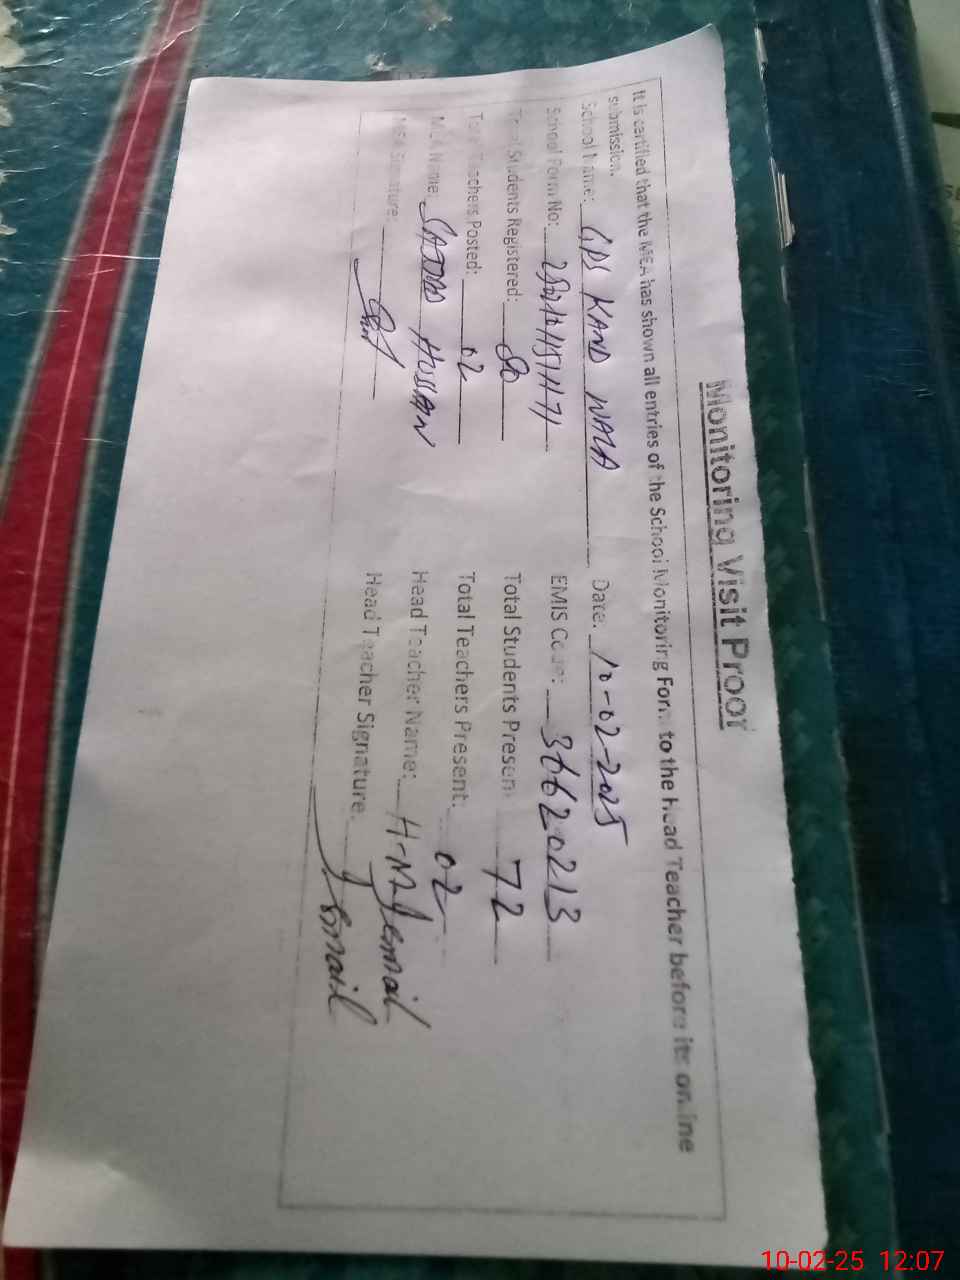 Monitoring Visit Proof
It is certified that the MEA has shown all entries of the School Monitoring Form to the Head Teacher before its online
submission.
School Name: GPS KAND WALA Date: 10-02-2025
School Form No: EMIS Code: 36620213
Total Students Registered: 80 Total Students Present 72
Total Teachers Posted: 02 Total Teachers Present: 02
MEA Name: SAJJAD HUSSAIN Head Teacher Name: H-M Ismail
MEA Signature: Head Teacher Signature: Ismail
10-02-25 12:07